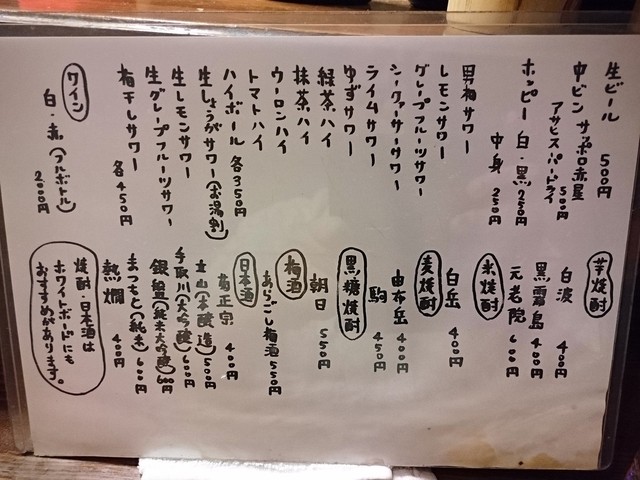 生ビール 500円
中ビン サッポロ赤星
アサヒスーパードライ 500円
ホッピー 白・黒 250円
中身 250円
男梅サワー
レモンサワー
グレープフルーツサワー
シークァーサーサワー
ライムサワー
ゆずサワー
緑茶ハイ
抹茶ハイ
ウーロンハイ
トマトハイ
ハイボール 各350円
生しょうがサワー(お湯割)
生レモンサワー
生グレープフルーツサワー
梅干しサワー 各450円
ワイン
白・赤(フルボトル) 2000円
芋焼酎
白波 400円
黒霧島 400円
元老院 600円
米焼酎
白岳 400円
麦焼酎
由布岳 400円
駒 450円
黒糖焼酎
朝日 550円
梅酒
あらごし梅酒 550円
日本酒
菊正宗 400円
立山(本醸造) 500円
手取川(大吟醸) 600円
銀盤(純米大吟醸) 600円
まつもと(純米) 600円
熱燗 400円
焼酎・日本酒は
ホワイトボードにも
おすすめがあります。